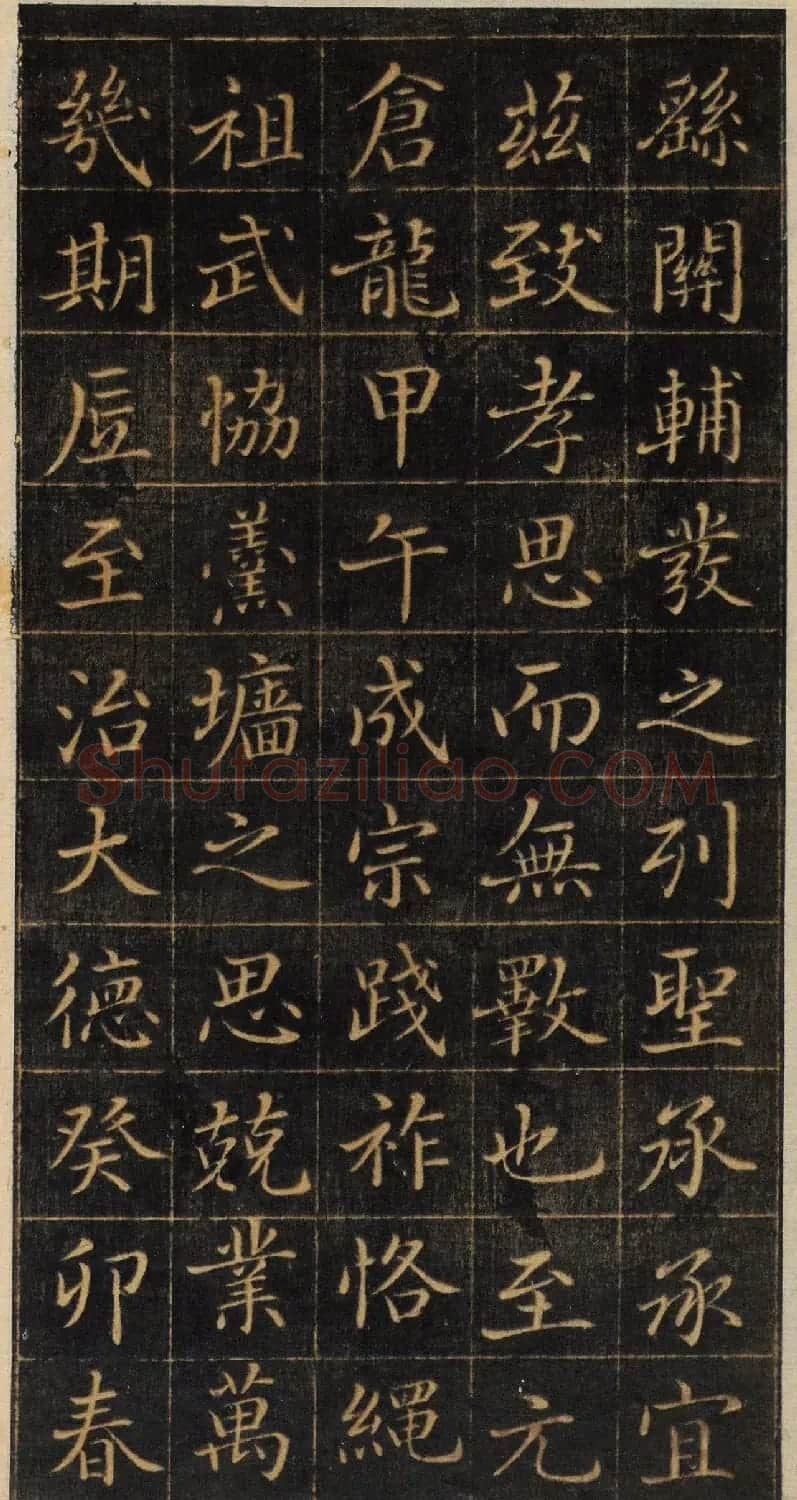 繇關輔發之列聖承承宜
茲致孝思而無斁也至元
倉龍甲午成宗踐祚恪繩
祖武恊羹墻之思兢業萬
㡬期底至治大德癸卯春
Shufaziliao.COM